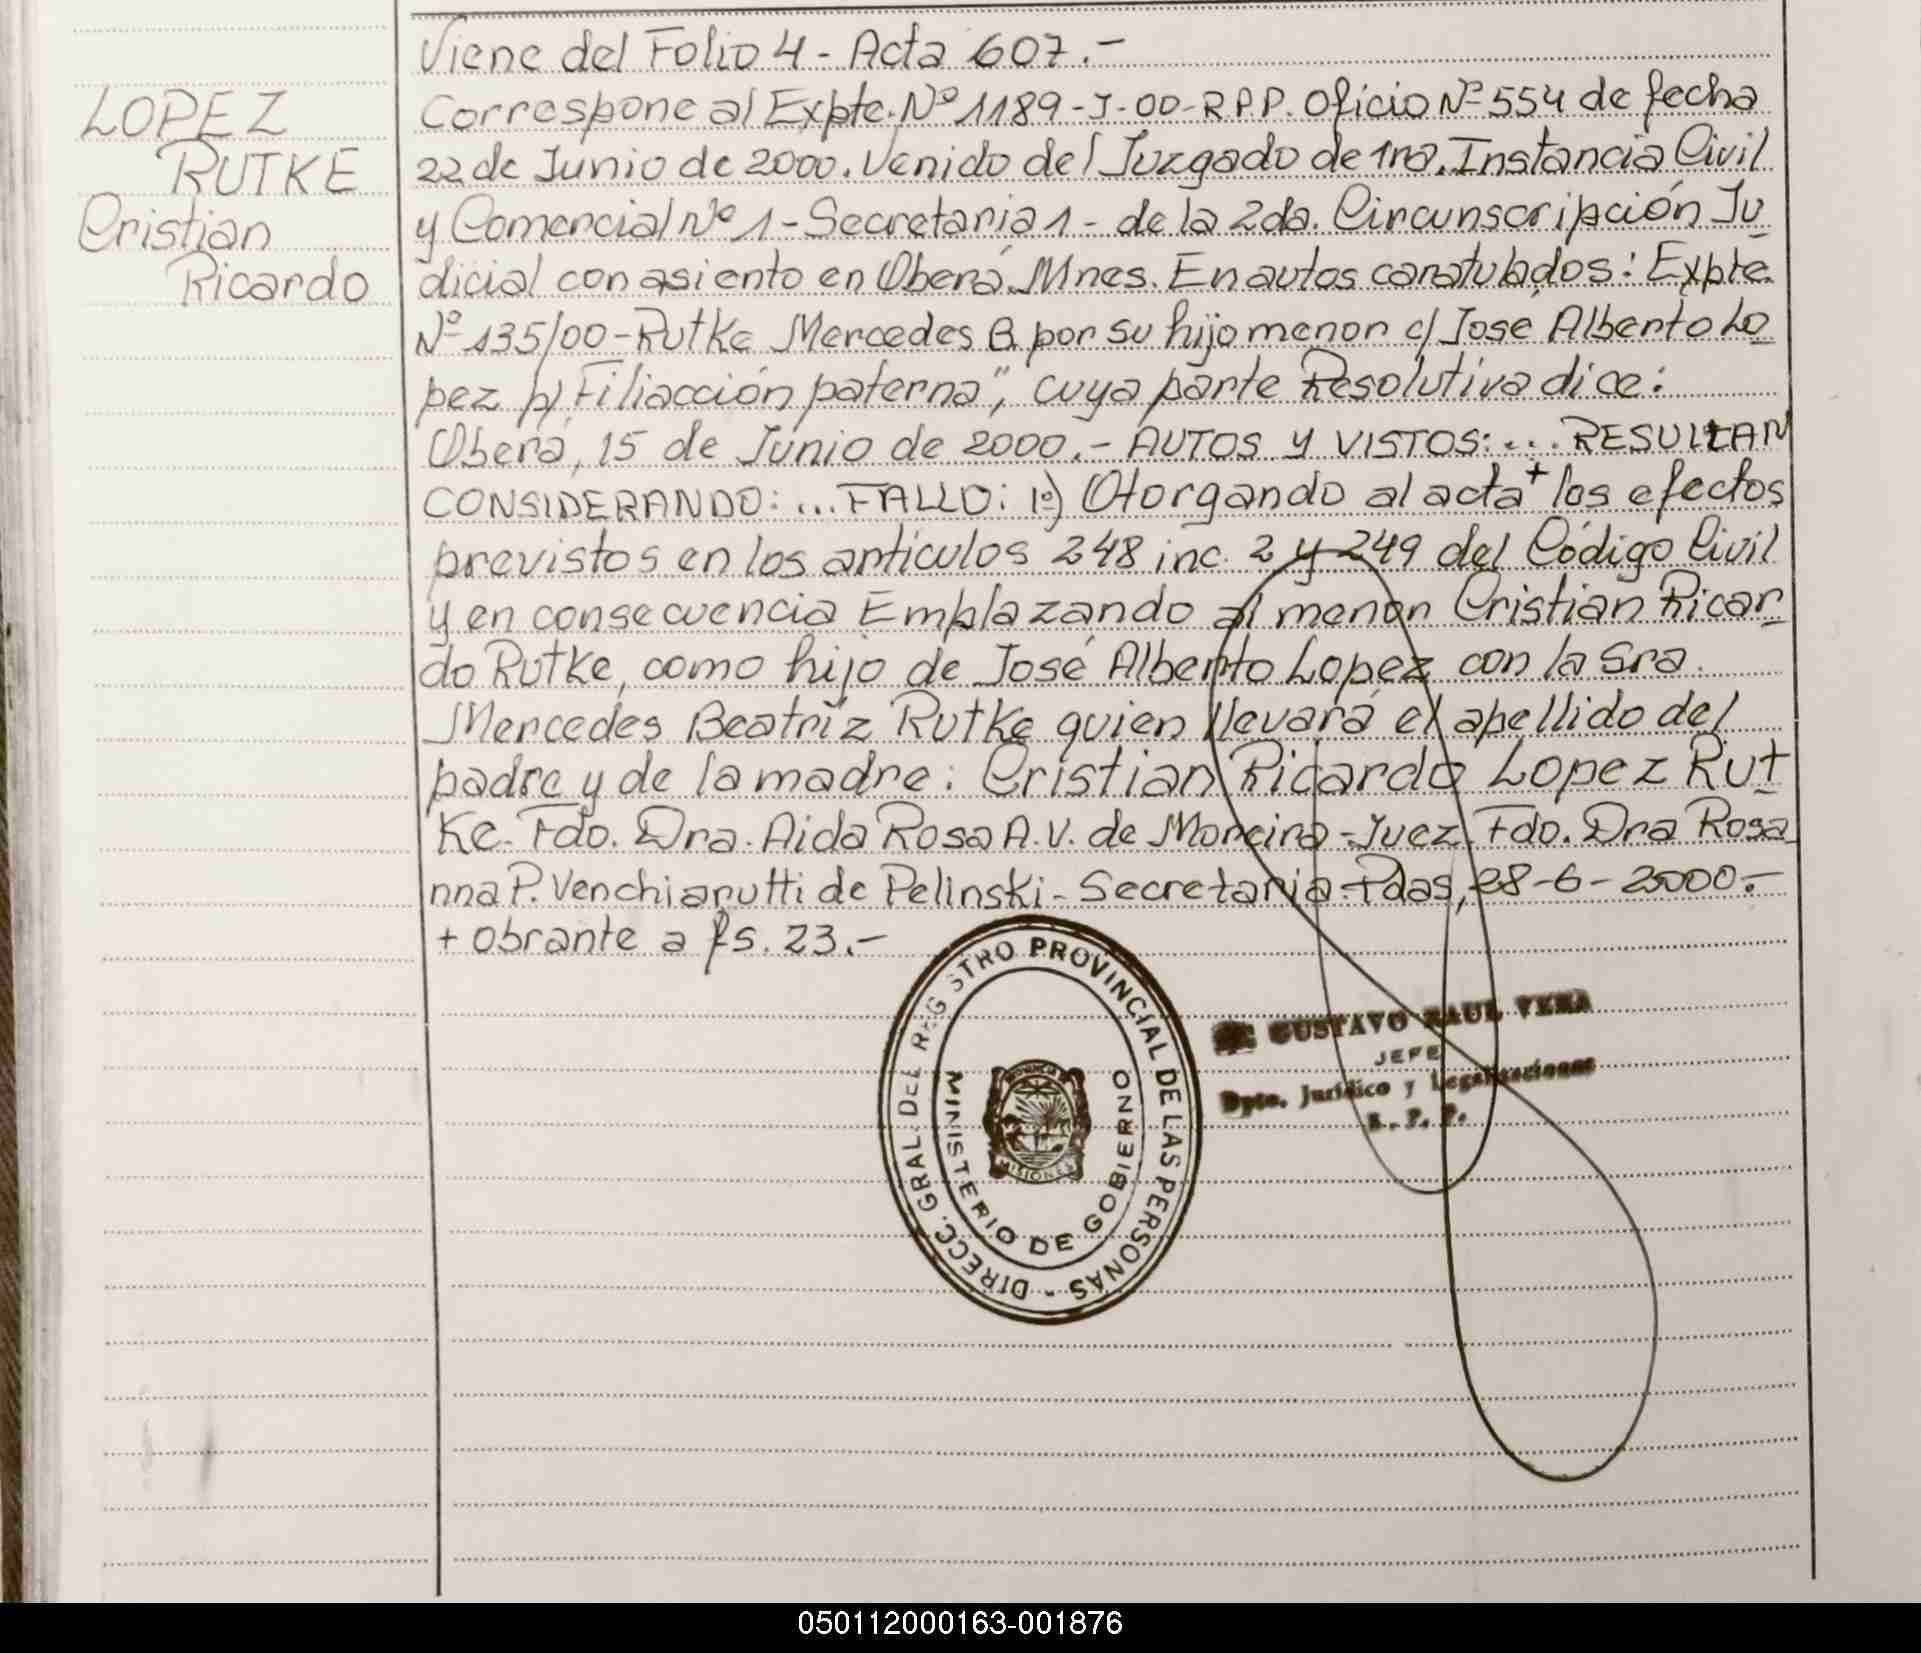 LOPEZ
RUTKE
Cristian
Ricardo
Viene del Folio 4 - Acta 607.-
Correspone al Expte. Nº 1189-J-00-R.P.P. Oficio Nº 554 de fecha
22 de Junio de 2000. Venido del Juzgado de 1ra. Instancia Civil
y Comercial Nº 1 - Secretaria 1 - de la 2da. Circunscripción Ju
dicial con asiento en Oberá. Mnes. En autos caratulados: Expte.
Nº 135/00 - Rutke Mercedes B. por su hijo menor c/ José Alberto Lo
pez p/ Filiacción paterna", cuya parte Resolutiva dice:
Oberá, 15 de Junio de 2000.- AUTOS Y VISTOS: ... RESULTAN
CONSIDERANDO: ... FALLO: 1º) Otorgando al acta + los efectos
previstos en los artículos 248 inc. 2 y 249 del Código Civil
y en consecuencia Emplazando al menor Cristian Ricar
do Rutke, como hijo de José Alberto Lopez con la Sra.
Mercedes Beatriz Rutke quien llevará el apellido del
padre y de la madre: Cristian Ricardo Lopez Rut
Ke. Fdo. Dra. Aida Rosa A.V. de Moreira - Juez. Fdo. Dra Rosa
nna P. Venchiarutti de Pelinski - Secretaria - Pdas, 28-6-2000.-
+ obrante a fs. 23.-
DIRECC. GRAL. DEL REGISTRO PROVINCIAL DE LAS PERSONAS -
MINISTERIO DE GOBIERNO
MISIONES
GUSTAVO RAUL VERA
JEFE
Dpto. Jurídico y Legalizaciones
R. P. P.
050112000163-001876